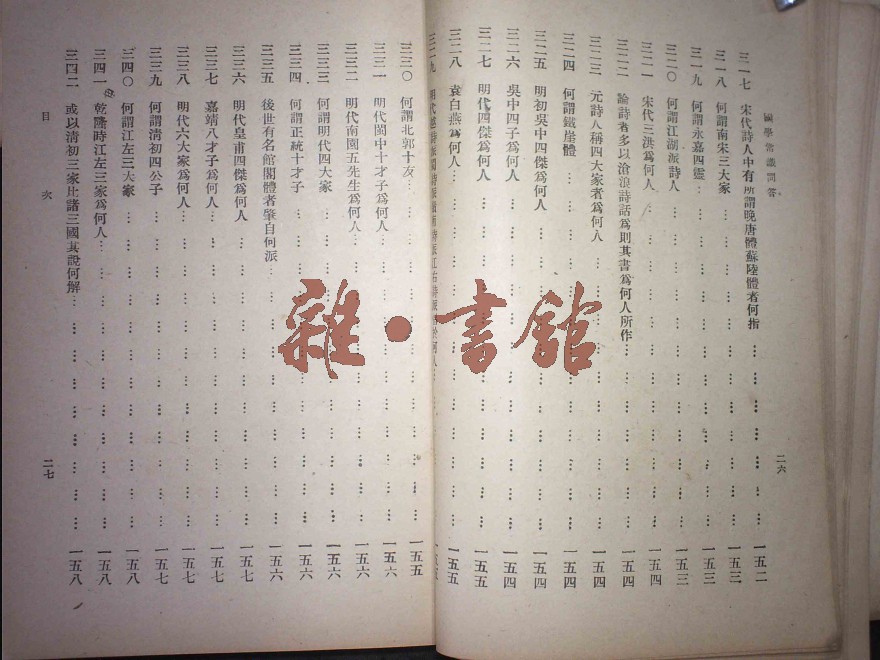 國學常識問答
二六
三一七 宋代詩人中有所謂晚唐體蘇陸體者何指 … … … … … … … … 一五二
三一八 何謂南宋三大家 … … … … … … … … … … … … 一五三
三一九 何謂永嘉四靈 … … … … … … … … … … … … 一五三
三二〇 何謂江湖派詩人 … … … … … … … … … … … … 一五三
三二一 宋代三洪爲何人 … … … … … … … … … … … … 一五四
三二二 論詩者多以滄浪詩話爲則其書爲何人所作 … … … … … … … … 一五四
三二三 元詩人稱四大家者爲何人 … … … … … … … … … … 一五四
三二四 何謂鐵崖體 … … … … … … … … … … … … 一五四
三二五 明初吳中四傑爲何人 … … … … … … … … … … … 一五四
三二六 吳中四子爲何人 … … … … … … … … … … … … 一五四
三二七 明代四傑爲何人 … … … … … … … … … … … … 一五五
三二八 袁白燕爲何人 … … … … … … … … … … … … 一五五
三二九 明代 何人 … … … 一五五
三三〇 何謂北郭十友 … … … … … … … … … … … … 一五五
三三一 明代閩中十才子爲何人 … … … … … … … … … … … 一五六
三三二 明代南園五先生爲何人 … … … … … … … … … … … 一五六
三三三 何謂明代四大家 … … … … … … … … … … … … 一五六
三三四 何謂正統十才子 … … … … … … … … … … … … 一五六
三三五 後世有名館閣體者肇自何派 … … … … … … … … … … 一五六
三三六 明代皇甫四傑爲何人 … … … … … … … … … … … 一五七
三三七 嘉靖八才子爲何人 … … … … … … … … … … … 一五七
三三八 明代六大家爲何人 … … … … … … … … … … … 一五七
三三九 何謂清初四公子 … … … … … … … … … … … … 一五七
三四〇 何謂江左三大家 … … … … … … … … … … … … 一五八
三四一 乾隆時江左三家爲何人 … … … … … … … … … … … 一五八
三四二 或以清初三家比諸三國其說何解 … … … … … … … … … 一五八
目 次
二七
雜·書館